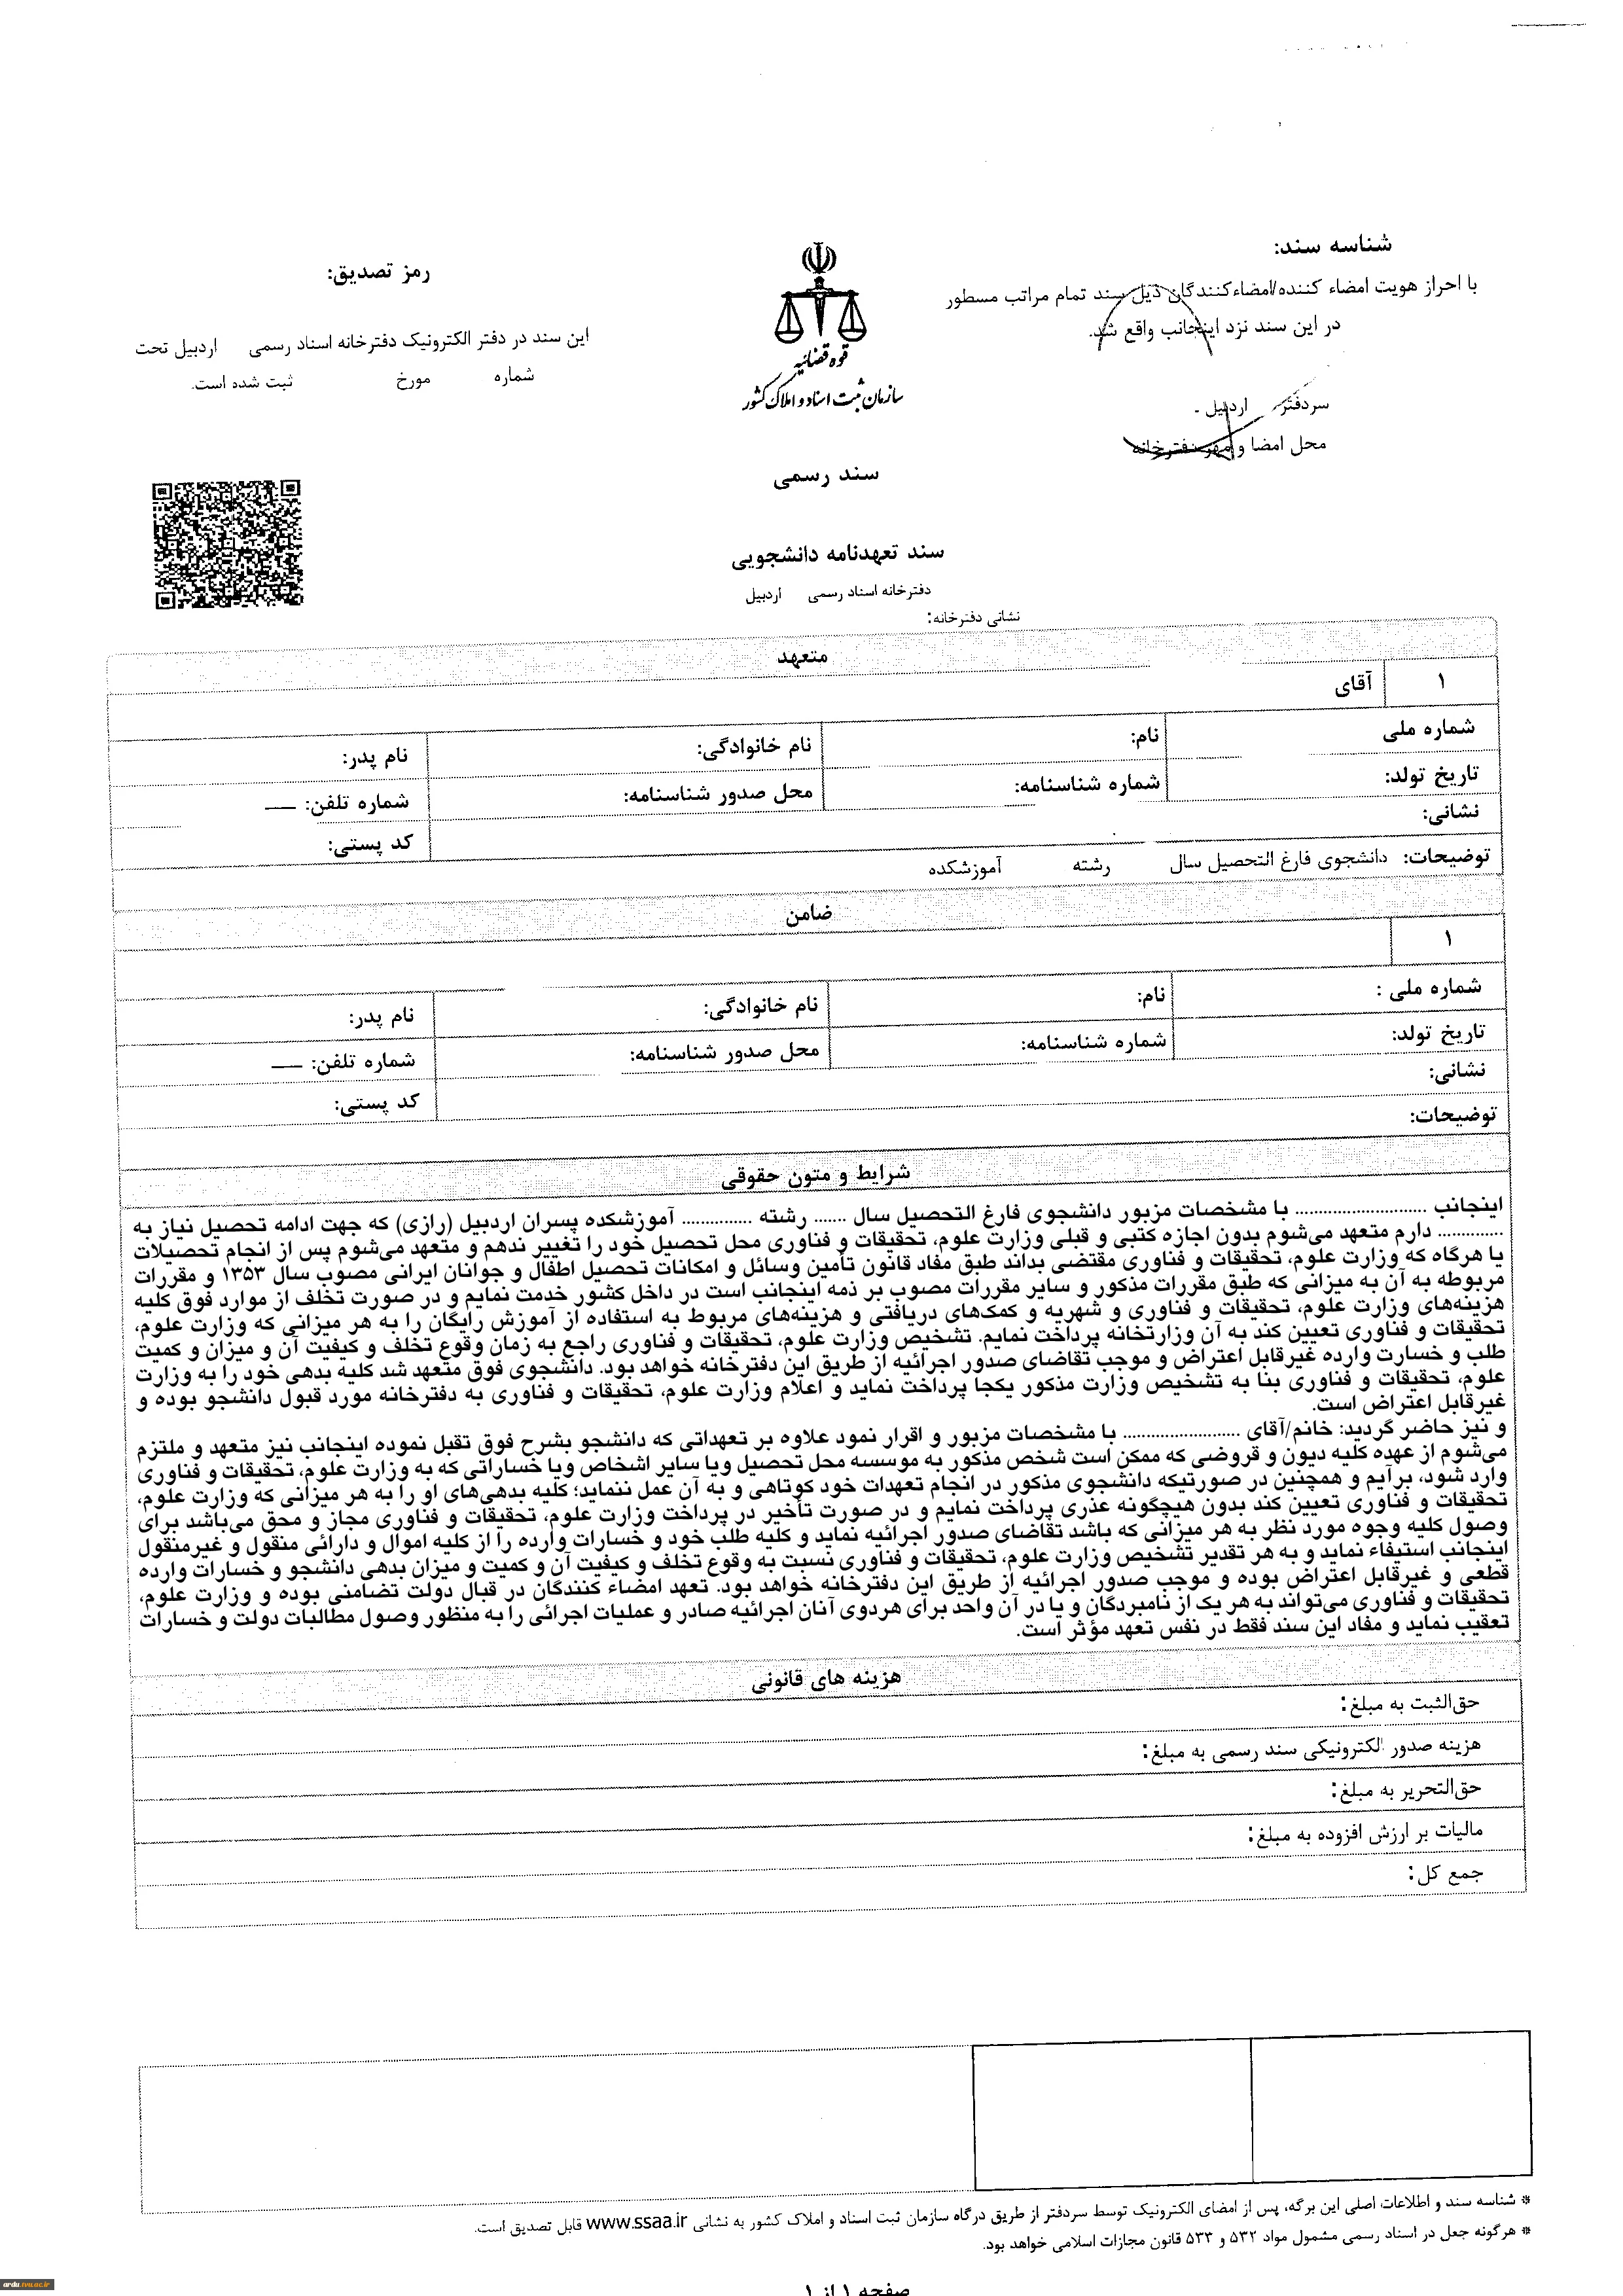 شناسه سند:
با احراز هویت امضاء کننده/امضاءکنندگان ذیل سند تمام مراتب مسطور
در این سند نزد اینجانب واقع شد.
سردفتر اردبیل -
محل امضا و مهر دفترخانه
قوه قضائیه
سازمان ثبت اسناد و املاک کشور
رمز تصدیق:
این سند در دفتر الکترونیک دفترخانه اسناد رسمی اردبیل تحت
شماره مورخ ثبت شده است.
سند رسمی
سند تعهدنامه دانشجویی
دفترخانه اسناد رسمی اردبیل
نشانی دفترخانه:
متعهد
۱ آقای
شماره ملی نام: نام خانوادگی: نام پدر:
تاریخ تولد: شماره شناسنامه: محل صدور شناسنامه: شماره تلفن: ---
نشانی: کد پستی:
توضیحات: دانشجوی فارغ التحصیل سال رشته آموزشکده
ضامن
۱
شماره ملی : نام: نام خانوادگی: نام پدر:
تاریخ تولد: شماره شناسنامه: محل صدور شناسنامه: شماره تلفن: ---
نشانی: کد پستی:
توضیحات:
شرایط و متون حقوقی
اینجانب .......................... با مشخصات مزبور دانشجوی فارغ التحصیل سال ...... رشته .............. آموزشکده پسران اردبیل (رازی) که جهت ادامه تحصیل نیاز به
............. دارم متعهد می‌شوم بدون اجازه کتبی و قبلی وزارت علوم، تحقیقات و فناوری محل تحصیل خود را تغییر ندهم و متعهد می‌شوم پس از انجام تحصیلات
یا هرگاه که وزارت علوم، تحقیقات و فناوری مقتضی بداند طبق مفاد قانون تأمین وسائل و امکانات تحصیل اطفال و جوانان ایرانی مصوب سال ۱۳۵۳ و مقررات
مربوطه به آن به میزانی که طبق مقررات مذکور و سایر مقررات مصوب بر ذمه اینجانب است در داخل کشور خدمت نمایم و در صورت تخلف از موارد فوق کلیه
هزینه‌های وزارت علوم، تحقیقات و فناوری و شهریه و کمک‌های دریافتی و هزینه‌های مربوط به استفاده از آموزش رایگان را به هر میزانی که وزارت علوم،
تحقیقات و فناوری تعیین کند به آن وزارتخانه پرداخت نمایم. تشخیص وزارت علوم، تحقیقات و فناوری راجع به زمان وقوع تخلف و کیفیت آن و میزان و کمیت
طلب و خسارت وارده غیرقابل اعتراض و موجب تقاضای صدور اجرائیه از طریق این دفترخانه خواهد بود. دانشجوی فوق متعهد شد کلیه بدهی خود را به وزارت
علوم، تحقیقات و فناوری بنا به تشخیص وزارت مذکور یکجا پرداخت نماید و اعلام وزارت علوم، تحقیقات و فناوری به دفترخانه مورد قبول دانشجو بوده و
غیرقابل اعتراض است.
و نیز حاضر گردید: خانم/آقای ....................... با مشخصات مزبور و اقرار نمود علاوه بر تعهداتی که دانشجو بشرح فوق تقبل نموده اینجانب نیز متعهد و ملتزم
می‌شوم از عهده کلیه دیون و قروضی که ممکن است شخص مذکور به موسسه محل تحصیل ویا سایر اشخاص ویا خساراتی که به وزارت علوم، تحقیقات و فناوری
وارد شود، برآیم و همچنین در صورتیکه دانشجوی مذکور در انجام تعهدات خود کوتاهی و به آن عمل ننماید؛ کلیه بدهی‌های او را به هر میزانی که وزارت علوم،
تحقیقات و فناوری تعیین کند بدون هیچگونه عذری پرداخت نمایم و در صورت تأخیر در پرداخت وزارت علوم، تحقیقات و فناوری مجاز و محق می‌باشد برای
وصول کلیه وجوه مورد نظر به هر میزانی که باشد تقاضای صدور اجرائیه نماید و کلیه طلب خود و خسارات وارده را از کلیه اموال و دارائی منقول و غیرمنقول
اینجانب استیفاء نماید و به هر تقدیر تشخیص وزارت علوم، تحقیقات و فناوری نسبت به وقوع تخلف و کیفیت آن و کمیت و میزان بدهی دانشجو و خسارات وارده
قطعی و غیرقابل اعتراض بوده و موجب صدور اجرائیه از طریق این دفترخانه خواهد بود. تعهد امضاء کنندگان در قبال دولت تضامنی بوده و وزارت علوم،
تحقیقات و فناوری می‌تواند به هر یک از نامبردگان و یا در آن واحد برای هردوی آنان اجرائیه صادر و عملیات اجرائی را به منظور وصول مطالبات دولت و خسارات
تعقیب نماید و مفاد این سند فقط در نفس تعهد مؤثر است.
هزینه های قانونی
حق‌الثبت به مبلغ:
هزینه صدور الکترونیکی سند رسمی به مبلغ:
حق‌التحریر به مبلغ:
مالیات بر ارزش افزوده به مبلغ:
جمع کل:
* شناسه سند و اطلاعات اصلی این برگه، پس از امضای الکترونیک توسط سردفتر از طریق درگاه سازمان ثبت اسناد و املاک کشور به نشانی www.ssaa.ir قابل تصدیق است.
* هرگونه جعل در اسناد رسمی مشمول مواد ۵۳۲ و ۵۳۳ قانون مجازات اسلامی خواهد بود.
صفحه ۱ از ۱
ardu.tvu.ac.ir